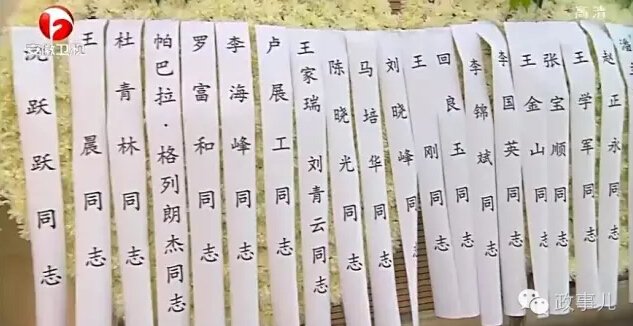 安徽卫视
高清
跃跃同志
王晨同志
杜青林同志
帕巴拉·格列朗杰同志
罗富和同志
李海峰同志
卢展工同志
王家瑞 刘青云同志
陈晓光同志
马培华同志
刘晓峰
王刚同志
回良玉同志
李锦斌同志
李国英同志
王金山同志
张宝顺同志
王学军同志
赵正永同志
政事儿